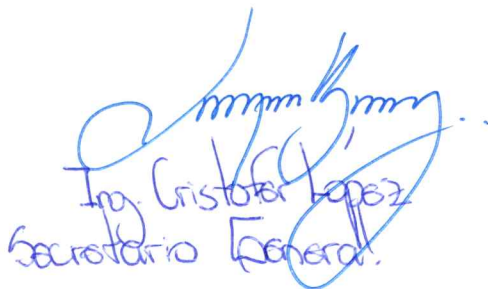 Ing. Cristofer López
Secretario General.